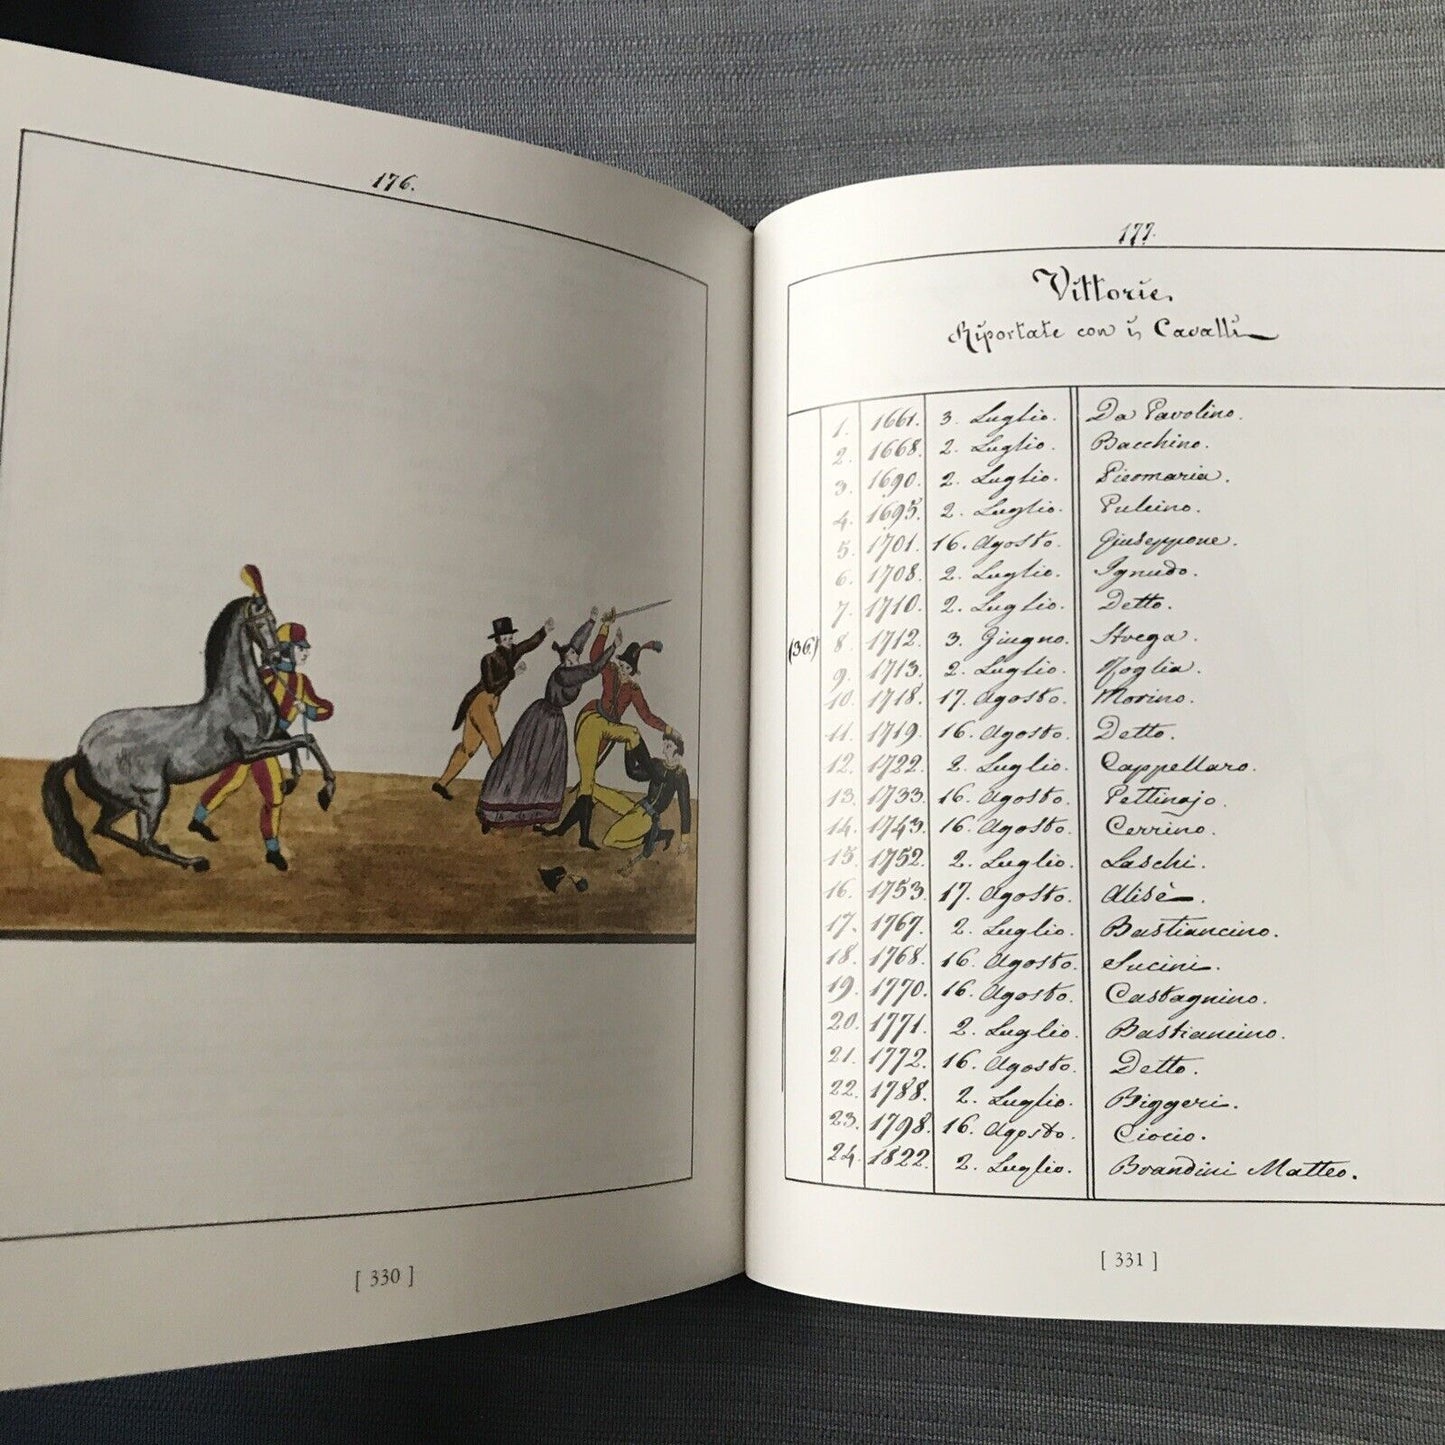 176.
[ 330 ]
177.
Vittorie.
Riportate con i, Cavalli
(36)
1. 1661. 3. Luglio. Da Pavolino.
2. 1668. 2. Luglio. Bacchino.
3. 1690. 2. Luglio. Picomaria.
4. 1695. 2. Luglio. Pulcino.
5. 1701. 16. Agosto. Giuseppone.
6. 1708. 2. Luglio. Ignudo.
7. 1710. 2. Luglio. Detto.
8. 1712. 3. Giugno. Strega.
9. 1713. 2. Luglio. Moglia.
10. 1718. 17. Agosto. Morino.
11. 1719. 16. Agosto. Detto.
12. 1722. 2. Luglio. Cappellaro.
13. 1733. 16. Agosto. Pettinajo.
14. 1743. 16. Agosto. Cerrino.
15. 1752. 2. Luglio. Laschi.
16. 1753. 17. Agosto. Alisè.
17. 1767. 2. Luglio. Bastiancino.
18. 1768. 16. Agosto. Sucini.
19. 1770. 16. Agosto. Castagnino.
20. 1771. 2. Luglio. Bastiancino.
21. 1772. 16. Agosto. Detto.
22. 1788. 2. Luglio. Biggeri.
23. 1798. 16. Agosto. Ciocio.
24. 1822. 2. Luglio. Brandini Matteo.
[ 331 ]